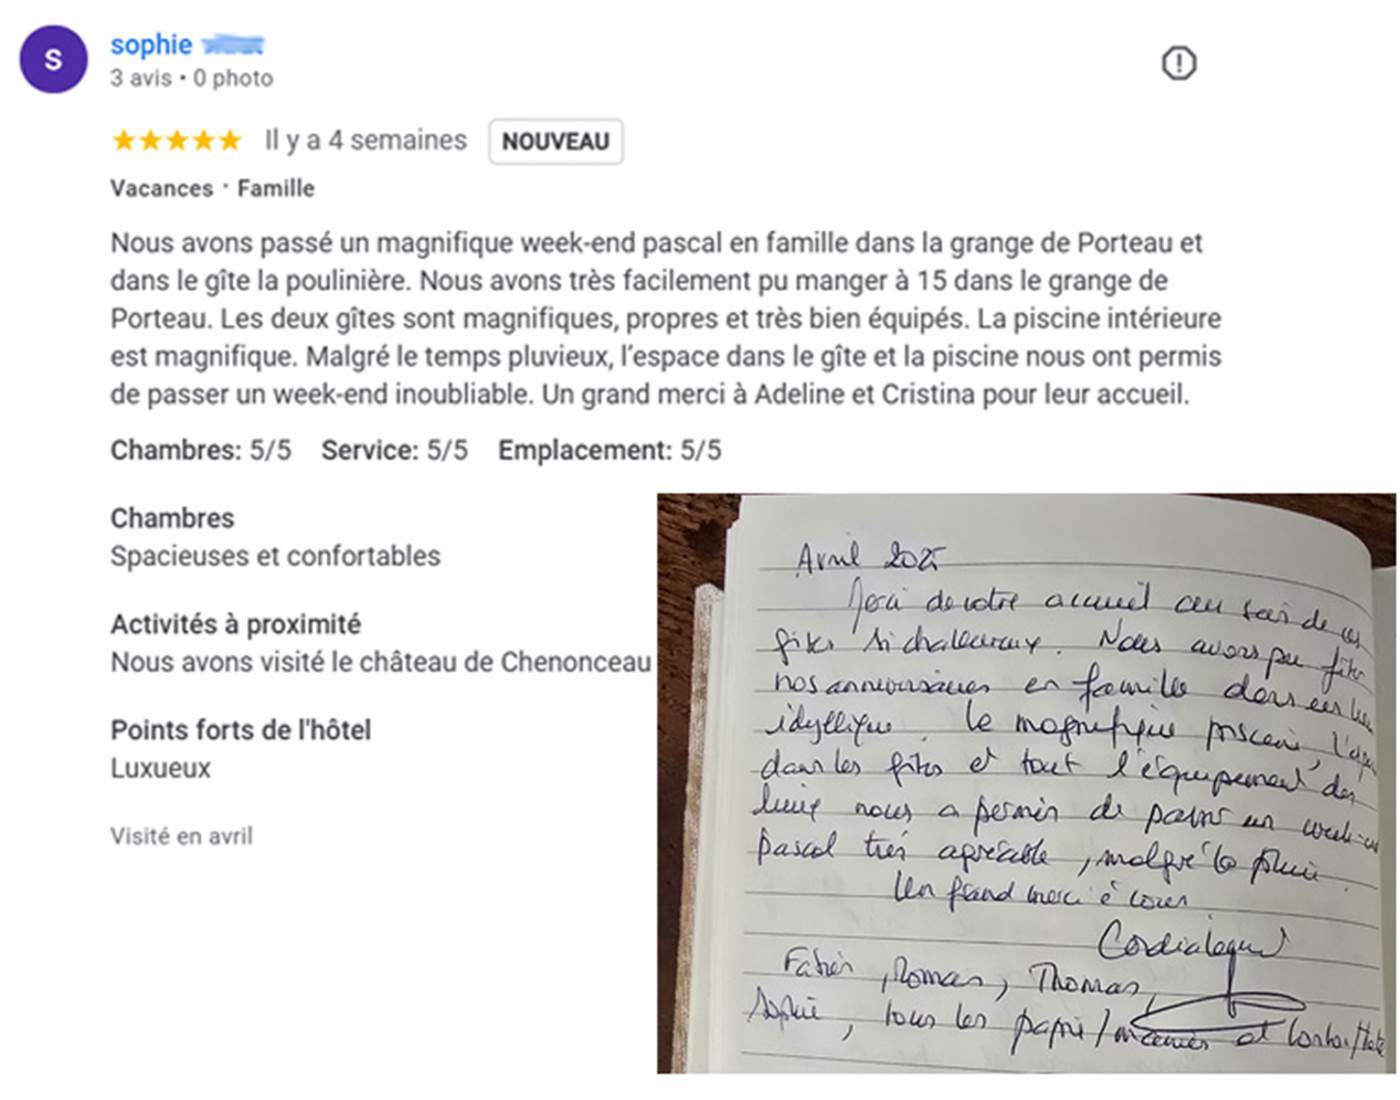 S
sophie
3 avis • 0 photo
Il y a 4 semaines NOUVEAU
Vacances · Famille
Nous avons passé un magnifique week-end pascal en famille dans la grange de Porteau et
dans le gîte la poulinière. Nous avons très facilement pu manger à 15 dans le grange de
Porteau. Les deux gîtes sont magnifiques, propres et très bien équipés. La piscine intérieure
est magnifique. Malgré le temps pluvieux, l'espace dans le gîte et la piscine nous ont permis
de passer un week-end inoubliable. Un grand merci à Adeline et Cristina pour leur accueil.
Chambres: 5/5 Service: 5/5 Emplacement: 5/5
Chambres
Spacieuses et confortables
Activités à proximité
Nous avons visité le château de Chenonceau
Points forts de l'hôtel
Luxueux
Visité en avril
Avril 2025
Merci de votre accueil au sein de ces
gîtes si chaleureux. Nous avons pu fêter
nos anniversaires en famille dans ces
idyllique. La magnifique piscine,
dans les gîtes et tout l'équipement des
lieux nous a permis de passer un week-en
pascal très agréable, malgré la pluie.
Un grand merci à vous
Cordialement
Romas, Thomas,
Sophie, tous les papis/mamies et